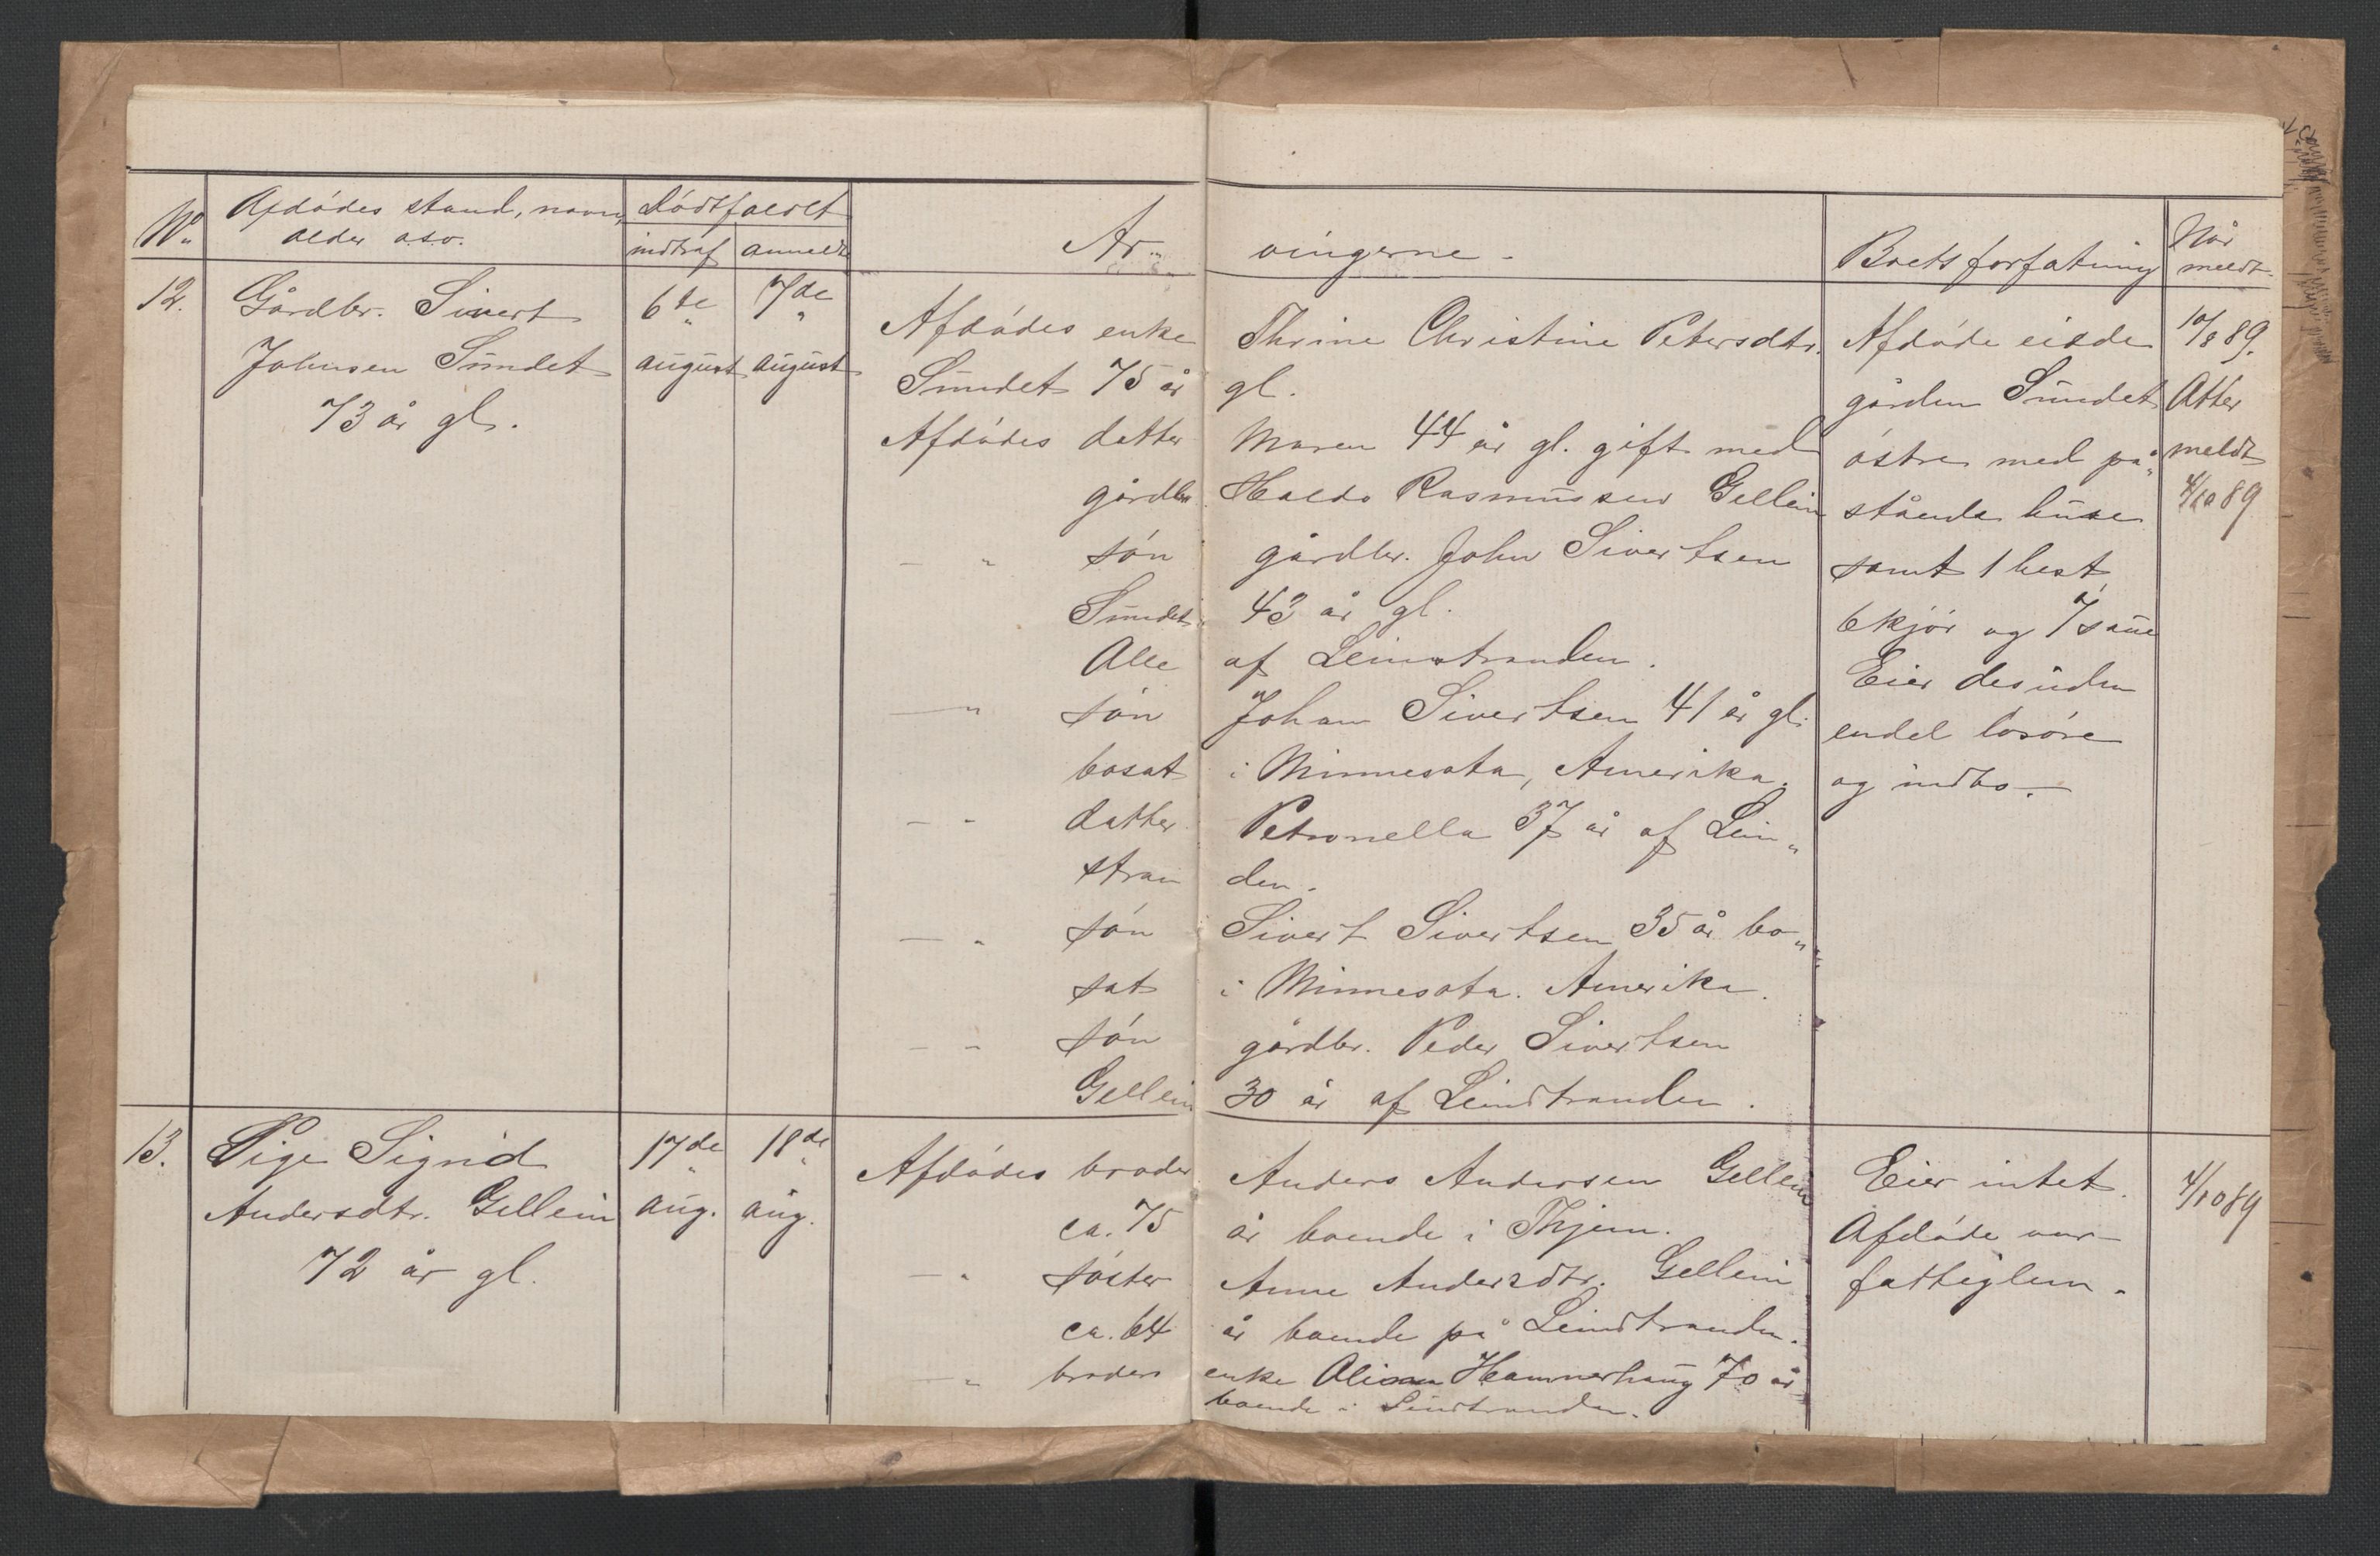 No. Afdødes stand, navn, alder o.s.v. Dødsfaldet indtraf anmeldt Ar- vingerne. Boets forfatning Når meldt.
12. Gårdbr. Sivert 6te 7de Afdødes enke Thrine Christine Petersdtr. Afdøde eiede 10/8 89.
Johnsen Sundet august august Sundet 75 år gl. gården Sundet Atter
73 år gl. Afdødes datter Maren 44 år gl. gift med østre med på- meldt
gårdbr. Haldo Rasmussen Gellein stående huse 4/10 89
— " søn gårdbr. John Sivertsen samt 1 hest,
Sundet 43 år gl. 6 kjør og 7 saue
Alle af Leinstranden. Eier desuden
— " søn Johan Sivertsen 41 år gl. endel løsøre
bosat i Minnesota, Amerika. og indbo.
— " datter Petronella 37 år af Lein-
stran den.
— " søn Sivert Sivertsen 35 år bo-
sat i Minnesota. Amerika.
— " søn gårdbr. Peder Sivertsen
Gellein 30 år af Leinstranden.
13. Pige Sigrid 17de 18de Afdødes broder Anders Andersen Gellein Eier intet. 4/10 89
Andersdtr. Gellein aug. aug. ca. 75 år boende i Thjem. Afdøde var
72 år gl. — " søster Anne Andersdtr. Gellein fattiglem.
ca. 64 år boende på Leinstranden.
— " broders enke Hammerhaug 70 år
boende i Leinstranden.